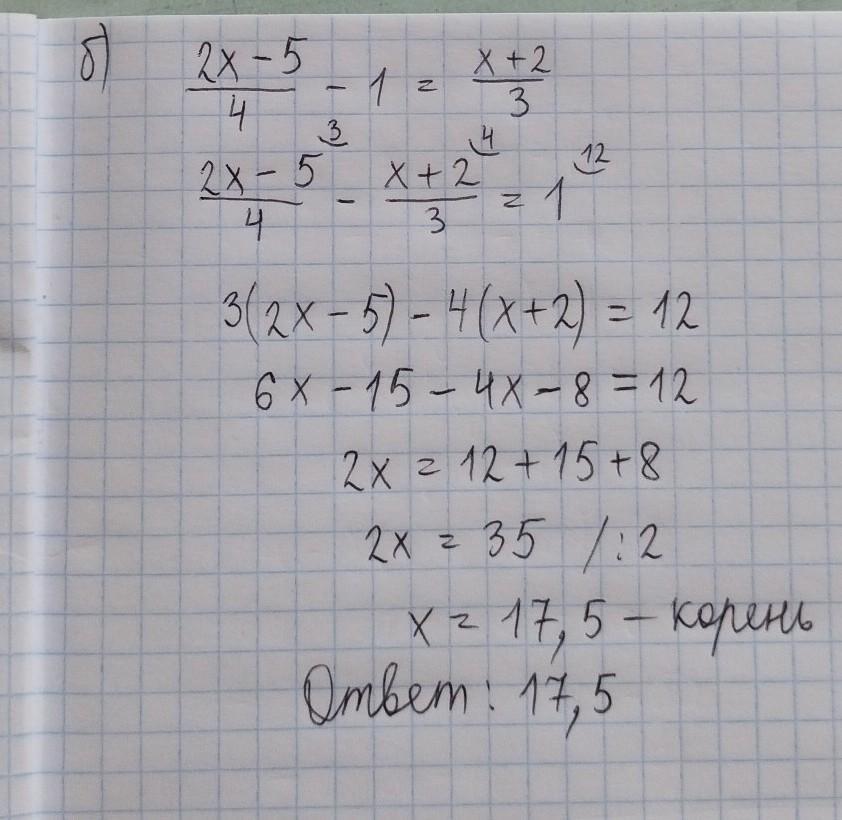 б) (2x - 5)/4 - 1 = (x + 2)/3
(2x - 5)/4 ^3 - (x + 2)/3 ^4 = 1 ^12
3(2x - 5) - 4(x + 2) = 12
6x - 15 - 4x - 8 = 12
2x = 12 + 15 + 8
2x = 35 /:2
x = 17,5 - корень
Ответ: 17,5